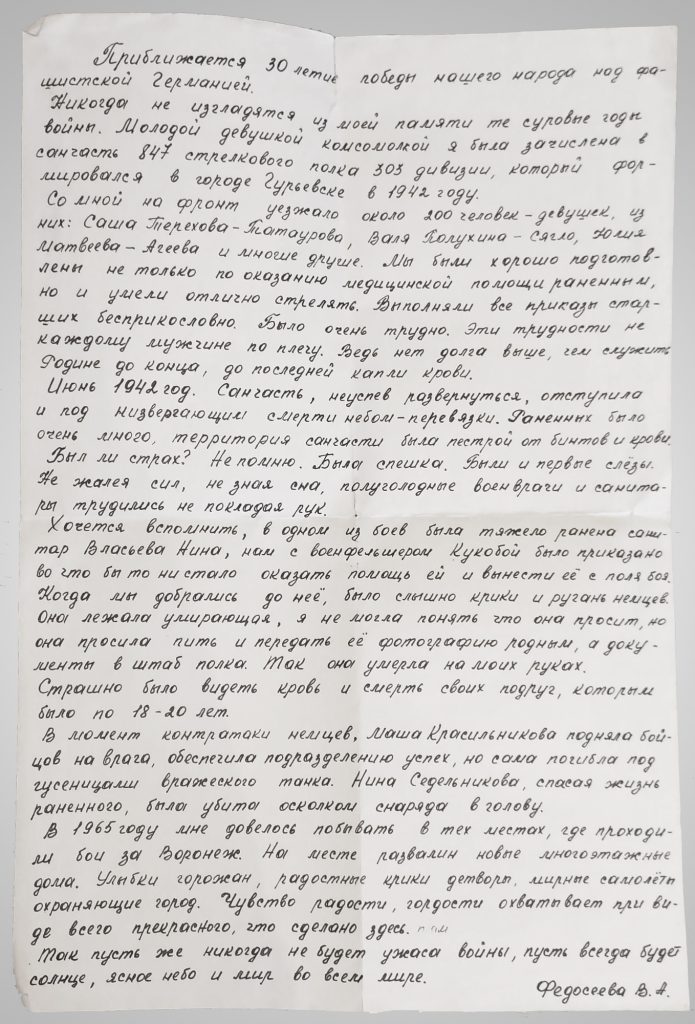 Приближается 30 летие победы нашего народа над фа-
шистской Германией.
Никогда не изгладятся из моей памяти те суровые годы
войны. Молодой девушкой комсомолкой я была зачислена в
санчасть 847 стрелкового полка 303 дивизии, который фор-
мировался в городе Гурьевске в 1942 году.
Со мной на фронт уезжало около 200 человек-девушек, из
них: Саша Терехова-Татаурова, Валя Полухина-Сягло, Юлия
Матвеева-Агеева и многие другие. Мы были хорошо подготов-
лены не только по оказанию медицинской помощи раненным,
но и умели отлично стрелять. Выполняли все приказы стар-
ших бесприкословно. Было очень трудно. Эти трудности не
каждому мужчине по плечу. Ведь нет долга выше, чем служить
Родине до конца, до последней капли крови.
Июнь 1942 год. Санчасть, неуспев развернуться, отступила
и под низвергающим смерти небом-перевязки. Раненных было
очень много, территория санчасти была пестрой от бинтов и крови.
Был ли страх? Не помню. Была спешка. Были и первые слёзы.
Не жалея сил, не зная сна, полуголодные военврачи и санита-
ры трудились не покладая рук.
Хочется вспомнить, в одном из боев была тяжело ранена сани-
тар Власьева Нина, нам с военфельшером Кукобой было приказано
во что бы то ни стало оказать помощь ей и вынести её с поля боя.
Когда мы добрались до неё, было слышно крики и ругань немцев.
Она лежала умирающая, я не могла понять что она просит, но
она просила пить и передать её фотографию родным, а доку-
менты в штаб полка. Так она умерла на моих руках.
Страшно было видеть кровь и смерть своих подруг, которым
было по 18-20 лет.
В момент контратаки немцев, Маша Красильникова подняла бой-
цов на врага, обеспечила подразделению успех, но сама погибла под
гусеницами вражеского танка. Нина Седельникова, спасая жизнь
раненного, была убита осколком снаряда в голову.
В 1965 году мне довелось побывать в тех местах, где проходи-
ли бои за Воронеж. На месте развалин новые многоэтажные
дома. Улыбки горожан, радостные крики детворы, мирные самолёты
охраняющие город. Чувство радости, гордости охватывает при ви-
де всего прекрасного, что сделано здесь.
Так пусть же никогда не будет ужаса войны, пусть всегда будет
солнце, ясное небо и мир во всем мире.
Федосеева В. А.